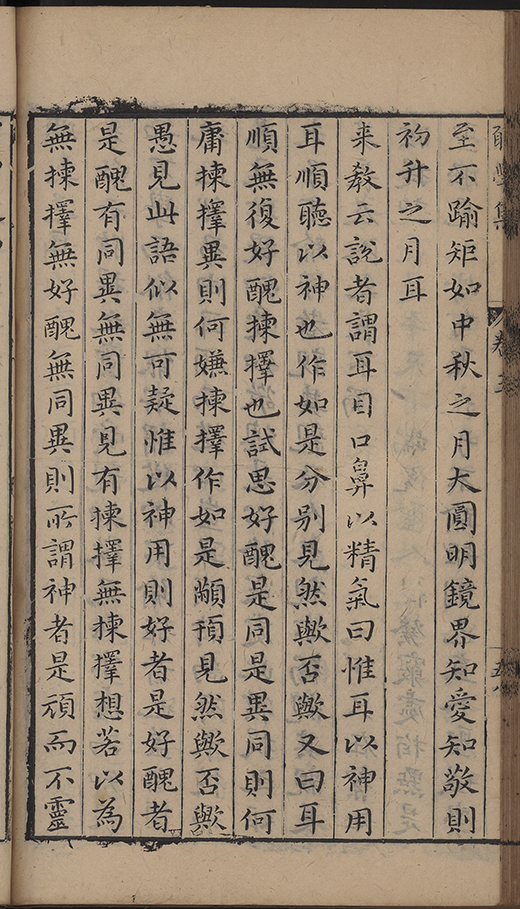 至不踰矩如中秋之月大圓明鏡界知愛知敬則
初升之月耳
来教云說者謂耳目口鼻以精氣曰惟耳以神用
耳順聽以神也作如是分别見然歟否歟又曰耳
順無復好醜揀擇也試思好醜是同是異同則何
庸揀擇異則何嫌揀擇作如是顢頇見然歟否歟
愚見此語似無可疑惟以神用則好者是好醜者
是醜有同異無同異見有揀擇無揀擇想若以為
無揀擇無好醜無同異則所謂神者是頑而不靈